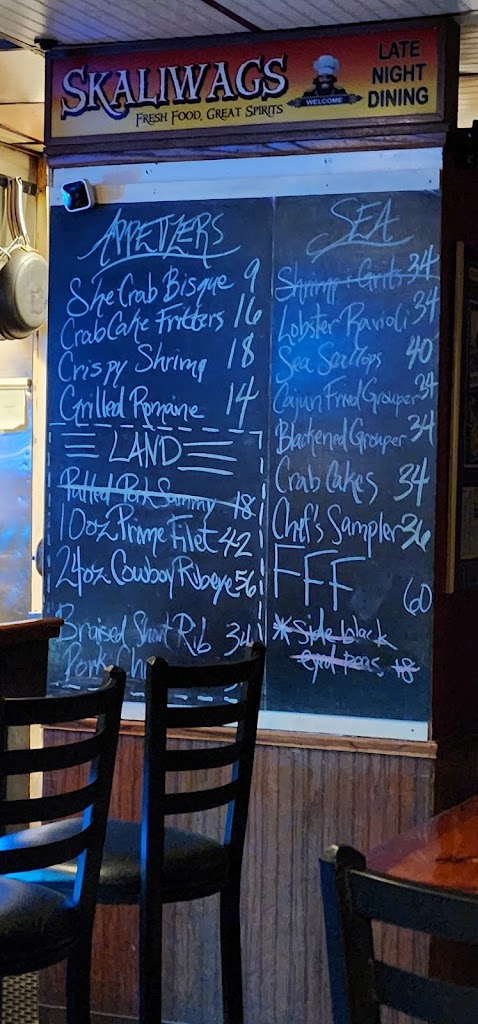 SKALIWAGS
FRESH FOOD, GREAT SPIRITS
WELCOME
LATE
NIGHT
DINING
APPETIZERS
She Crab Bisque 9
Crab Cake Fritters 16
Crispy Shrimp 18
Grilled Romaine 14
LAND
Pulled Pork Sammy 18
10oz Prime Filet 42
24oz Cowboy Ribeye 56
Braised Short Rib 34
Pork Ch
SEA
Shrimp & Grits 34
Lobster Ravioli 34
Sea Scallops 40
Cajun Fried Grouper 34
Blackened Grouper 34
Crab Cakes 34
Chef's Sampler 36
FFF 60
*Side black
eyed peas